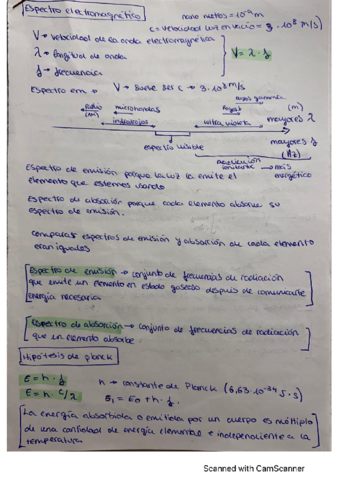 Espectro electromagnético
nano metros = 10⁻⁹ m
c = velocidad luz en vacío = 3·10⁸ m/s
V → velocidad de la onda electromagnética
λ → longitud de onda
f → frecuencia
V = λ · f
Espectro em → V → suele ser c → 3·10⁸ m/s
rayos gamma
radio (AM) microondas rayos x (m)
infrarrojos ultravioleta mayores λ
espectro visible mayores f (Hz)
radiación ionizante → más energético
Espectro de emisión porque la luz la emite el
elemento que estemos usando
Espectro de absorción porque cada elemento absorbe su
espectro de emisión.
comparas espectros de emisión y absorción de cada elemento
eran iguales
Espectro de emisión → conjunto de frecuencias de radiación
que emite un elemento en estado gaseoso después de comunicarle
energía necesaria
Espectro de absorción → conjunto de frecuencias de radiación
que un elemento absorbe
Hipótesis de planck
E = h · f
h → constante de Planck (6,63·10⁻³⁴ J·s)
E = h · c/λ
E₁ = E₀ + h · f.
La energía absorbida o emitida por un cuerpo es múltiplo
de una cantidad de energía elemental e independiente a la
temperatura
Scanned with CamScanner